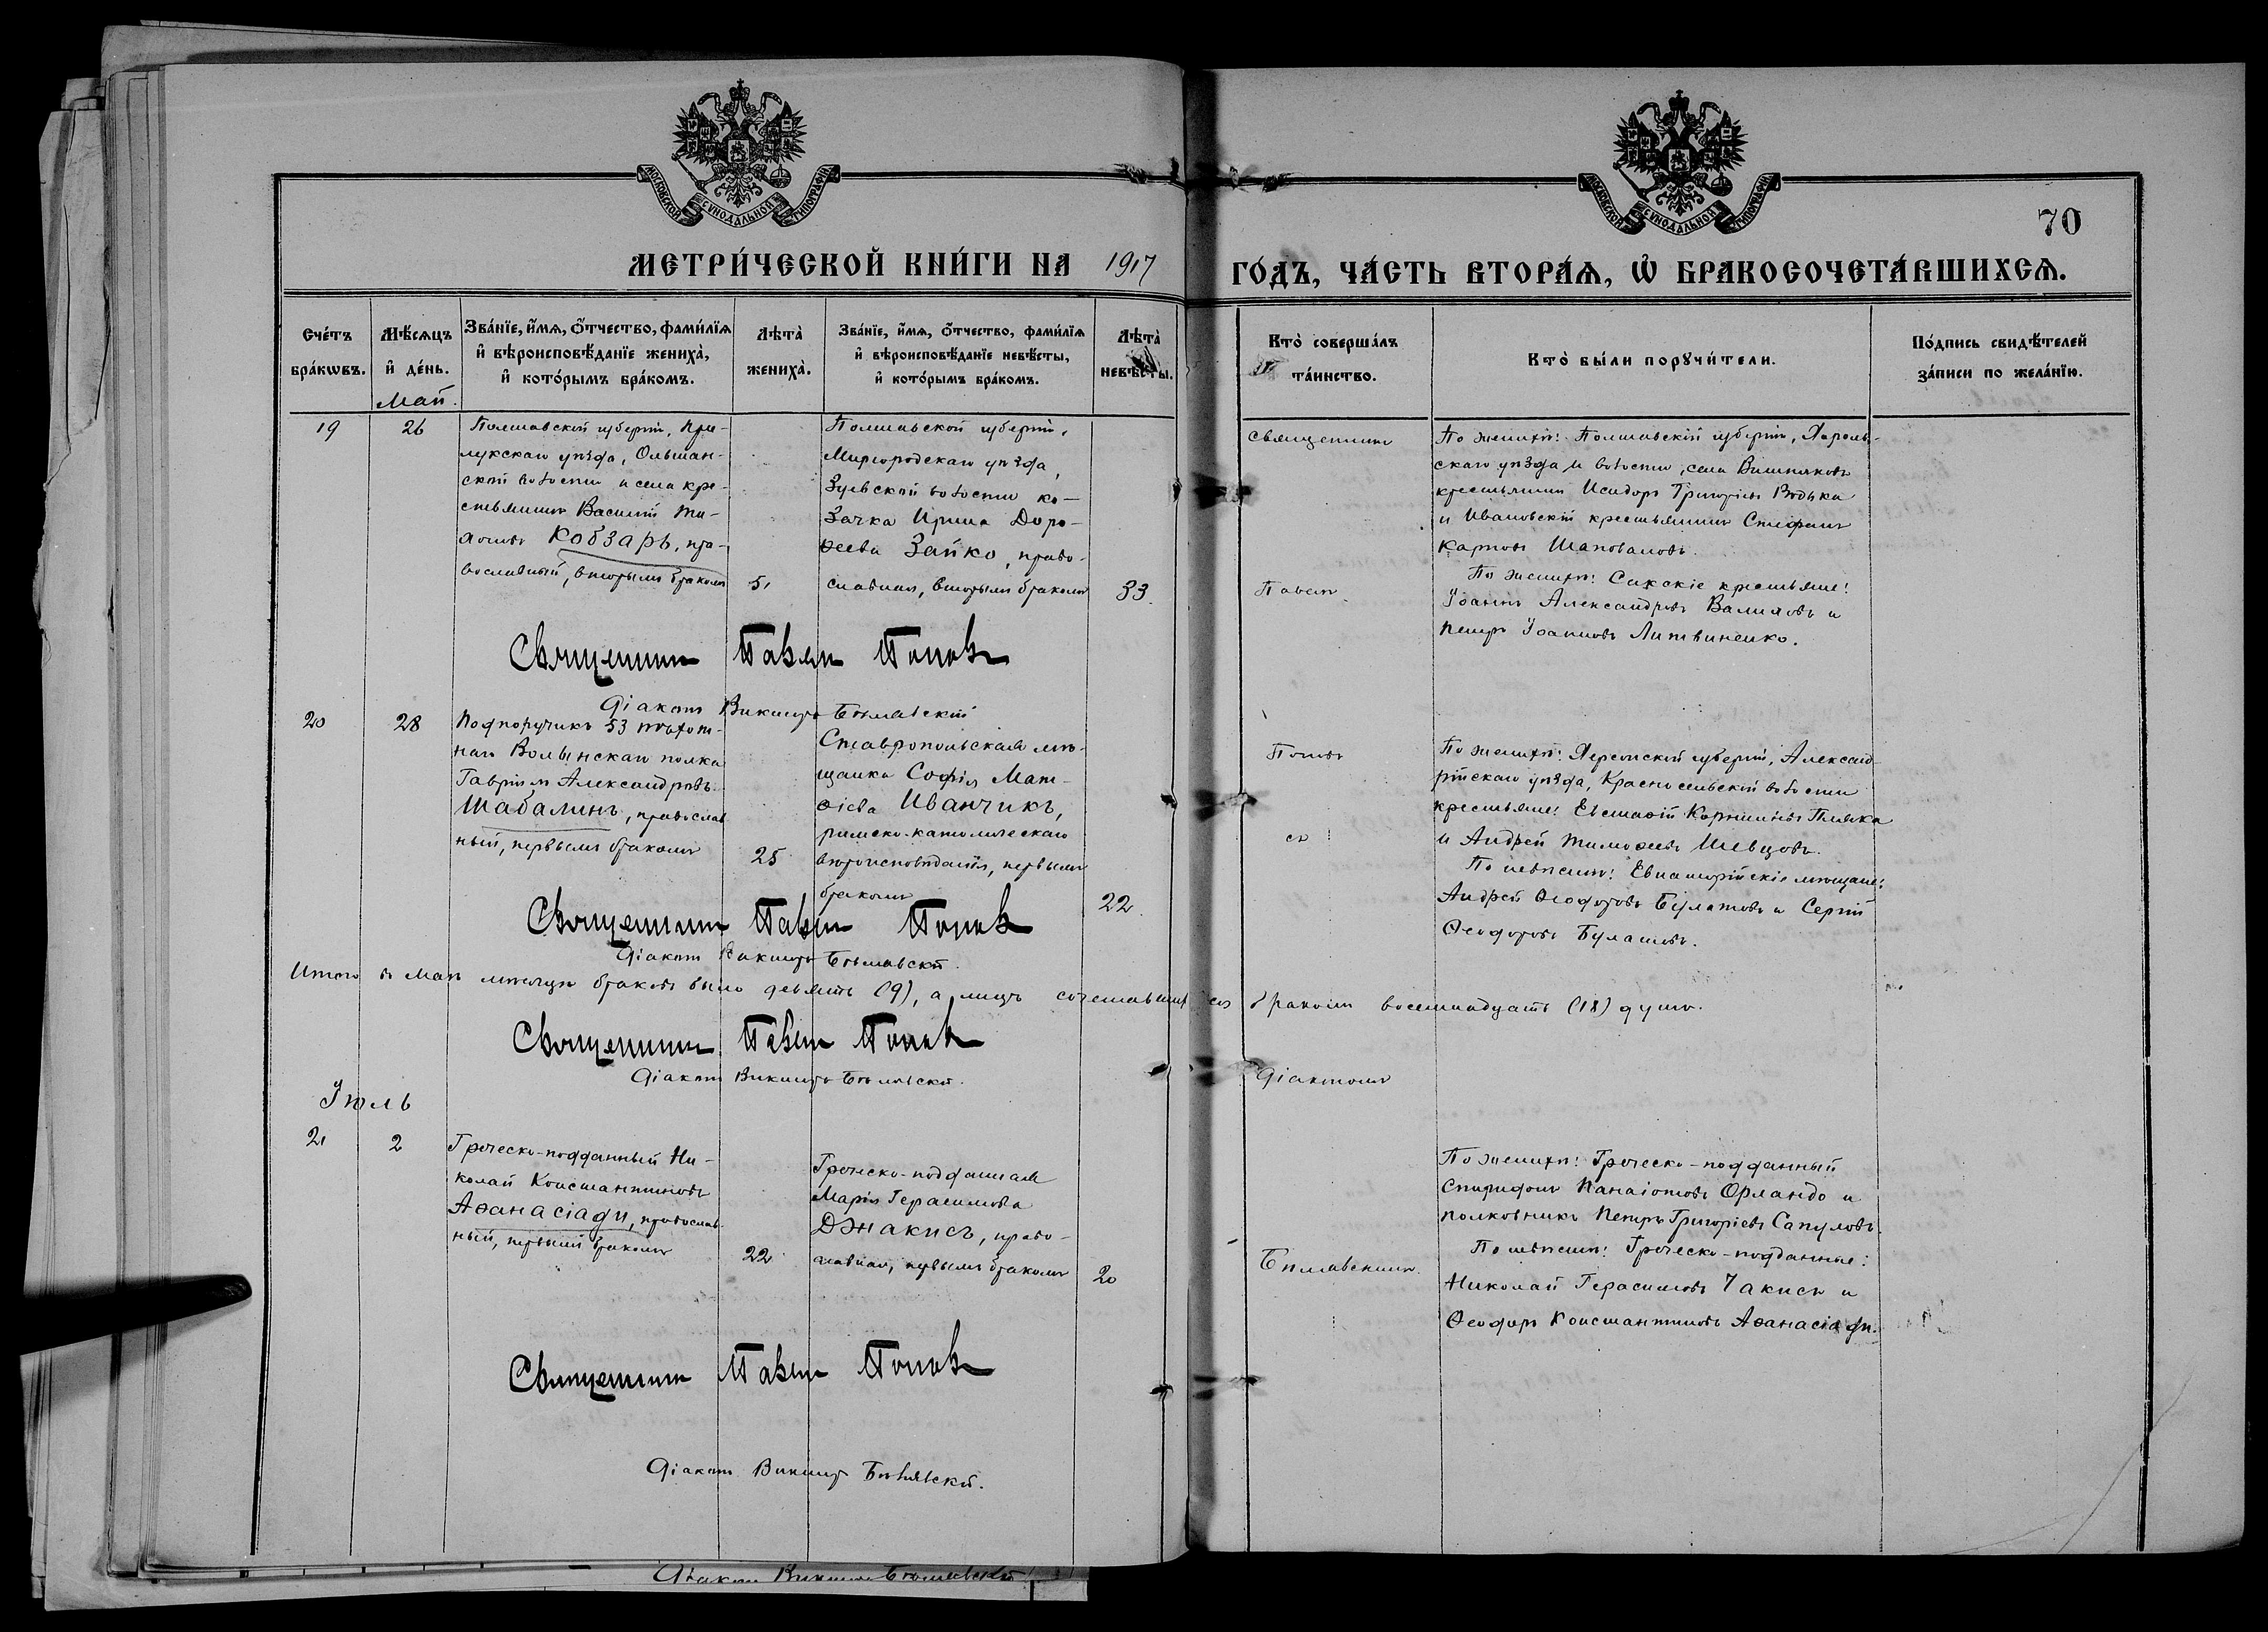 МОСКОВСКОЙ СѴНОДАЛЬНОЙ ТИПОГРАФІИ
МОСКОВСКОЙ СѴНОДАЛЬНОЙ ТИПОГРАФІИ
70
МЕТРИ́ЧЕСКОЙ КНИ́ГИ НА 1917 ГО́ДЪ, ЧА́СТЬ ВТОРА́Я, Ѡ БРАКОСОЧЕТА́ВШИХСЯ.
Сче́тъ бра́кѡвъ.
Мѣ́сяцъ и де́нь.
Зва́нїе, и́мя, ѻ́тчество, фами́лїя
и вѣроисповѣ́данїе жениха̀,
и кото́рымъ бра́комъ.
Лѣта̀ жениха̀.
Зва́нїе, и́мя, ѻ́тчество, фами́лїя
и вѣроисповѣ́данїе невѣ́сты,
и кото́рымъ бра́комъ.
Лѣта̀ невѣ́сты.
Кто̀ соверша́лъ та́инство.
Кто̀ бы́ли порꙋчи́тели.
По́дпись свидѣ́телей
за́писи по жела́нїю.
Май.
19
26
Полтавской губерніи, При-
лукскаго уѣзда, Ольшан-
ской волости и села кре-
стьянинъ Василій
Кобзарь, пра-
вославный, вторымъ бракомъ
51
Полтавской губерніи,
Миргородскаго уѣзда,
Зуевской волости ко-
зачка Ирина Доро-
ѳеева Зайко, право-
славная, вторымъ бракомъ
33.
Священникъ
Павелъ
По женихѣ: Полтавской губерніи, Хороль-
скаго уѣзда и волости, села Вишняковъ
крестьянинъ Исидоръ Григорьевъ Водька
и Ивановскій крестьянинъ Стефанъ
Карповъ Шаповаловъ.
По женихѣ: Сакскіе крестьяне:
Іоаннъ Александровъ Валиховъ и
Петръ Іоанновъ Литвиненко.
Священникъ Павелъ Поповъ
Діаконъ Викторъ Бѣлявскій
20
28
Подпоручикъ 53 пѣхот-
наго Волынскаго полка
Гавріилъ Александровъ
Шабалинъ, православ-
ный, первымъ бракомъ
25
Ставропольская мѣ-
щанка Софія Мат-
ѳіева Иванчикъ,
римско-католическаго
вѣроисповѣданія, первымъ
бракомъ
22.
Поповъ
съ
По женихѣ: Херсонской губерніи, Александ-
рійскаго уѣзда, Красносельской волости
крестьяне: Евстафій Корнильевъ
и Андрей Тимоѳеевъ Шевцовъ.
По невѣстѣ: Евпаторійскіе мѣщане:
Андрей Ѳеодоровъ Булатовъ и Сергій
Ѳеодоровъ Булатовъ.
Священникъ Павелъ Поповъ
Діаконъ Викторъ Бѣлявскій.
Итого въ маѣ мѣсяцѣ браковъ было девять (9), а лицъ сочетавшихся бракомъ восемнадцать (18) душъ.
Священникъ Павелъ Поповъ
Діаконъ Викторъ Бѣлявскій.
Діакономъ
Іюль
21
2
Греческо-подданный Ни-
колай Константиновъ
Аѳанасіади, православ-
ный, первымъ бракомъ
22
Греческо-подданная
Марія Герасимова
Джакисъ, право-
славная, первымъ бракомъ
20
Бѣлявскимъ.
По женихѣ: Греческо-подданный
Спиридонъ Панаіотовъ Орландо и
полковникъ Петръ Григорьевъ Сапуловъ.
По невѣстѣ: Греческо-подданные:
Николай Герасимовъ Чакисъ и
Ѳеодоръ Константиновъ Аѳанасіади.
Священникъ Павелъ Поповъ
Діаконъ Викторъ Бѣлявскій.
Діаконъ Викторъ Бѣлявскій